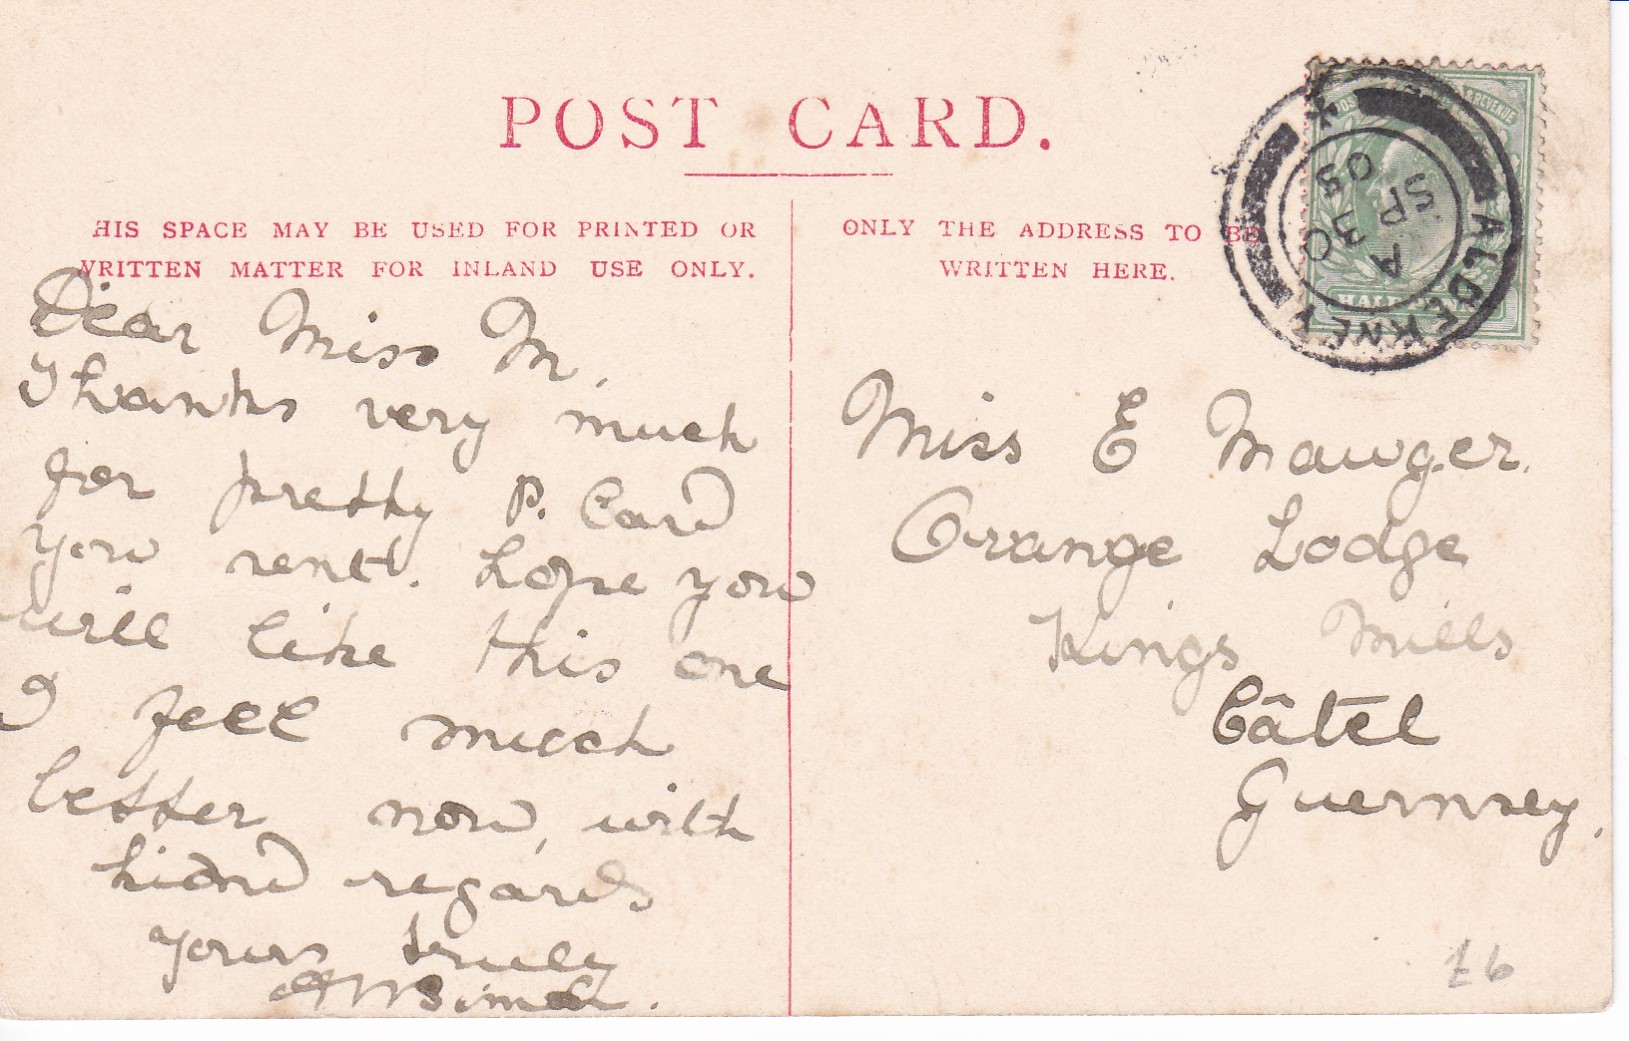 POST CARD.
HIS SPACE MAY BE USED FOR PRINTED OR
WRITTEN MATTER FOR INLAND USE ONLY.
Dear Miss M.
Thanks very much
for pretty P. Card
you sent. hope you
will like this one
I feel much
better now, with
kind regards
yours truly
ONLY THE ADDRESS TO BE
WRITTEN HERE.
Miss E Mauger.
Orange Lodge
Kings Mills
Câtel
Guernsey.
ALDERNEY
A
SP 3
05
HALFPENNY
£6